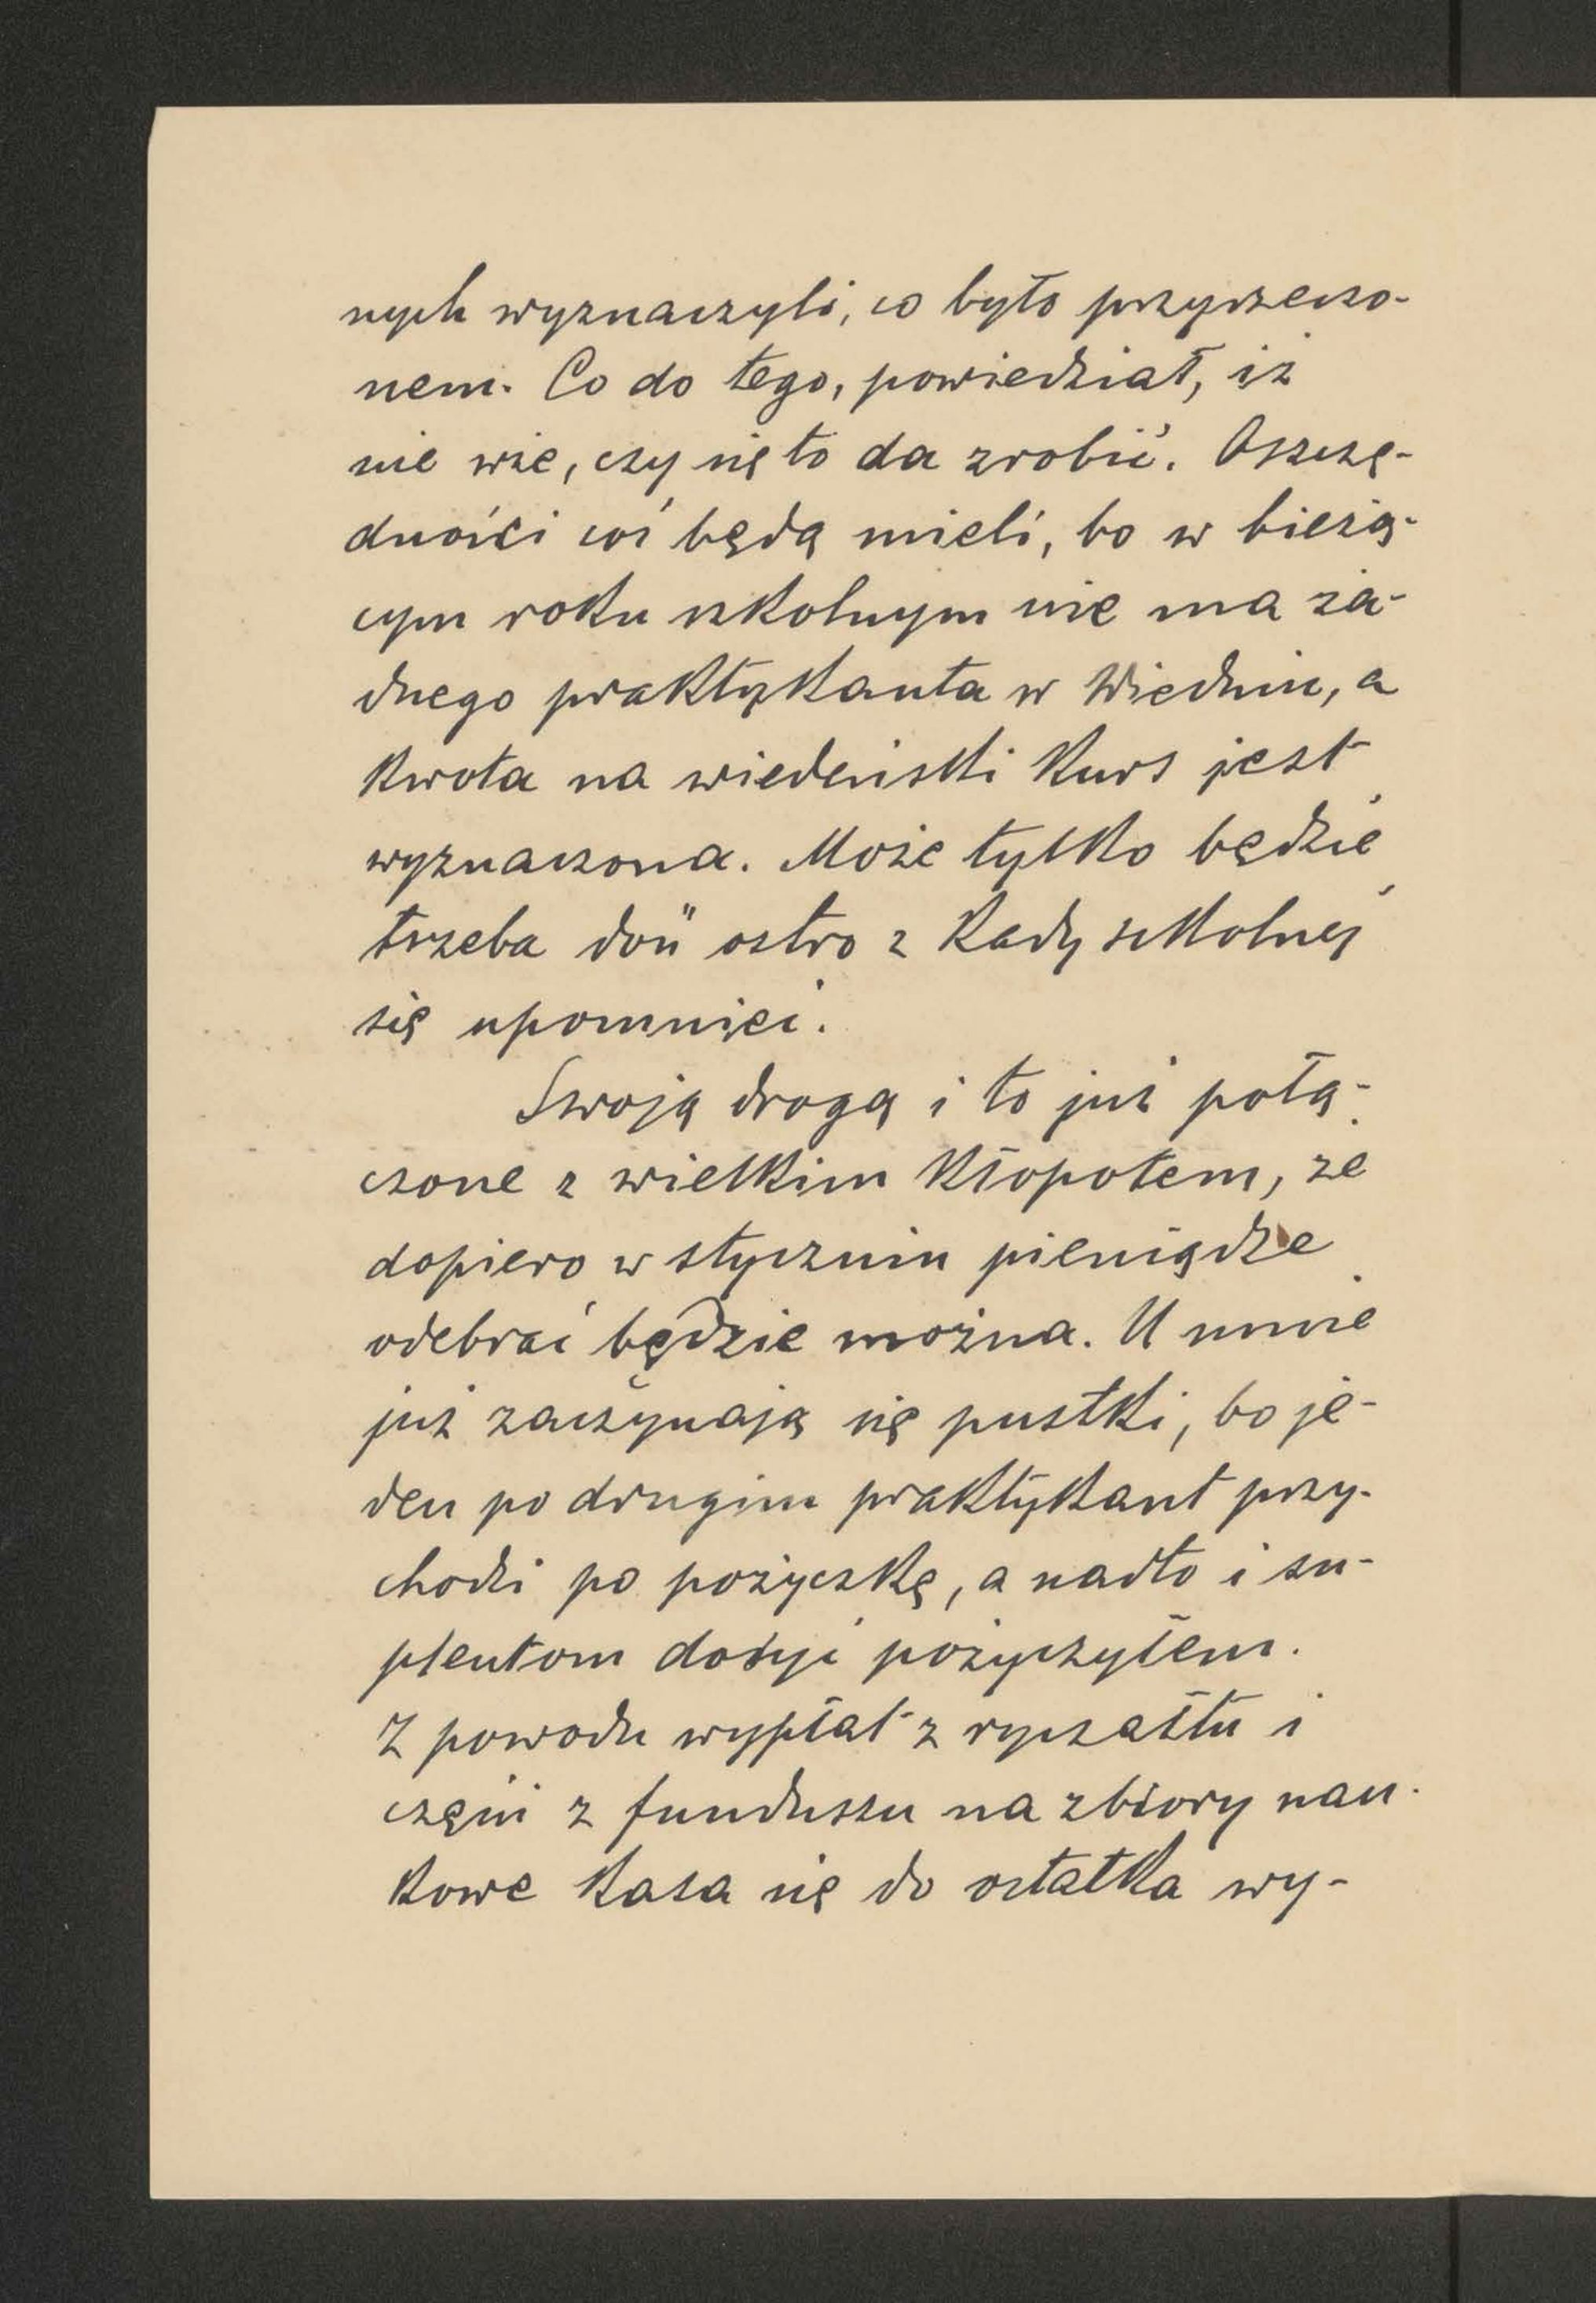 nych wyznaczyli, co było przyrzeczo-
nem. Co do tego, powiedział, iż
nie wie, czy się to da zrobić. Oszczę-
dności coś będą mieli, bo w bieżą-
cym roku szkolnym nie ma ża-
dnego praktykanta w Wiedniu, a
kwota na wiedeński kurs jest
wyznaczona. Może tylko będzie
trzeba doń ostro z Rady szkolnej
się upomnieć.
Swoją drogą i to już połą-
czone z wielkim kłopotem, że
dopiero w styczniu pieniądze
odebrać będzie można. U mnie
już zaczynają się pustki, bo je-
den po drugim praktykant przy-
chodzi po pożyczkę, a nadto i su-
plentom dosyć pożyczyłem.
Z powodu wypłat z ryczałtu i
części z funduszu na zbiory nau-
kowe kasa się do ostatka wy-